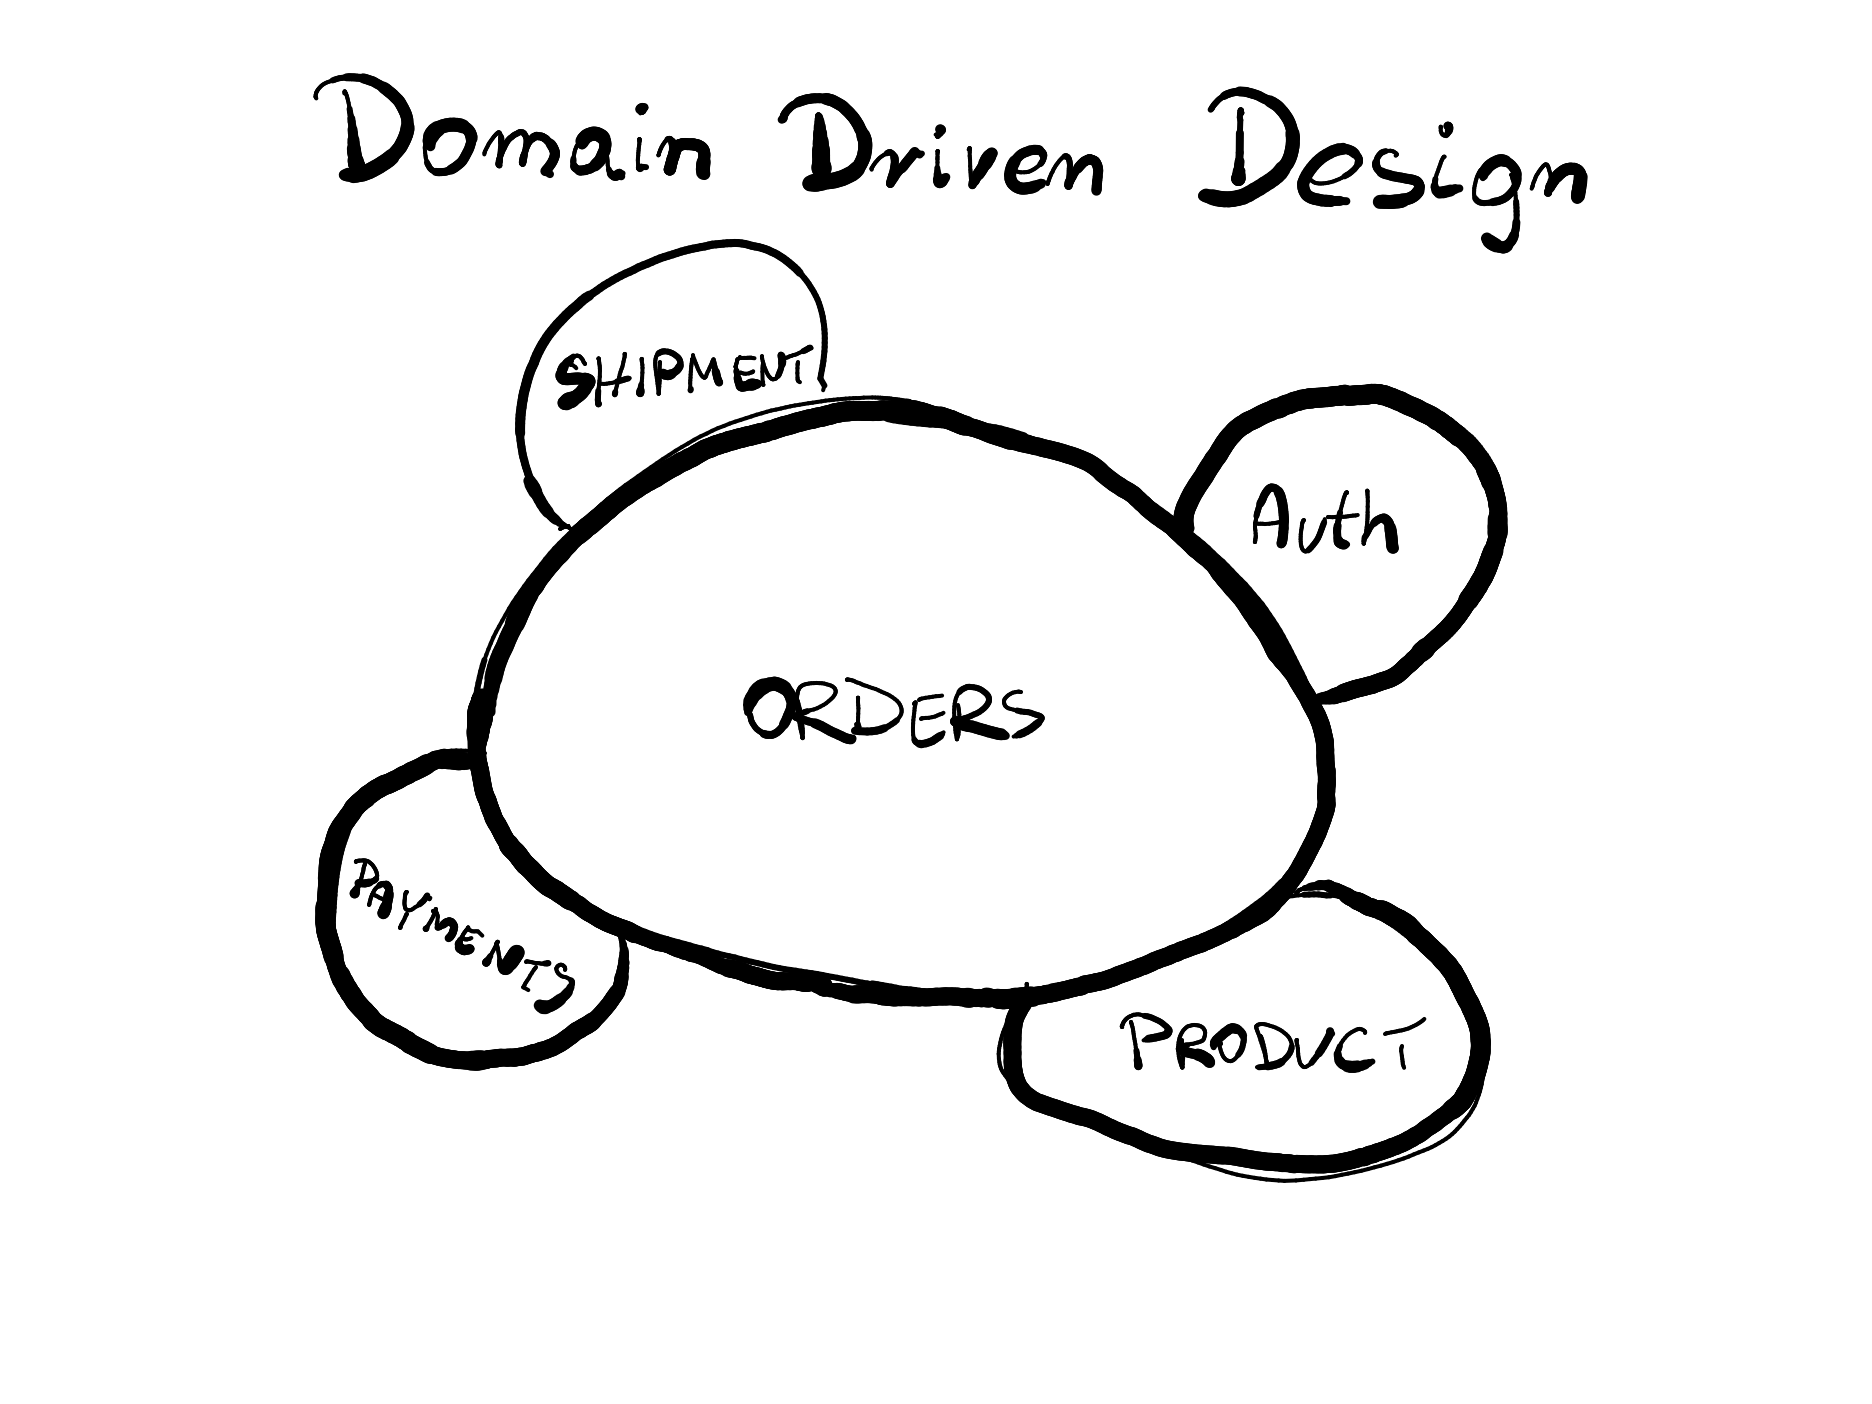 Domain Driven Design
SHIPMENT
Auth
ORDERS
PAYMENTS
PRODUCT